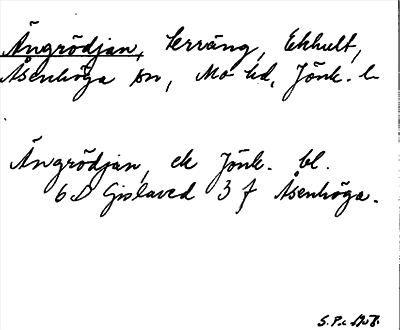 Ängrödjan, terräng, Ekhult,
Åsenhöga sn, Mo hd, Jönk. l.
Ängrödjan, ek Jönk. bl.
6 D Gislaved 3 f Åsenhöga.